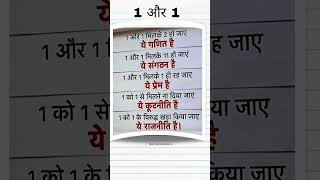 1 और 1
1 और 1 मिलके 2 हो जाएं
ये गणित है
1 और 1 मिलके 11 हो जाएं
ये संगठन है
1 और 1 मिलके 1 ही रह जाए
ये प्रेम है
1 को 1 से मिलने ना दिया जाए
ये कूटनीति है
1 को 1 के विरुद्ध खड़ा किया जाए
ये राजनीति है।